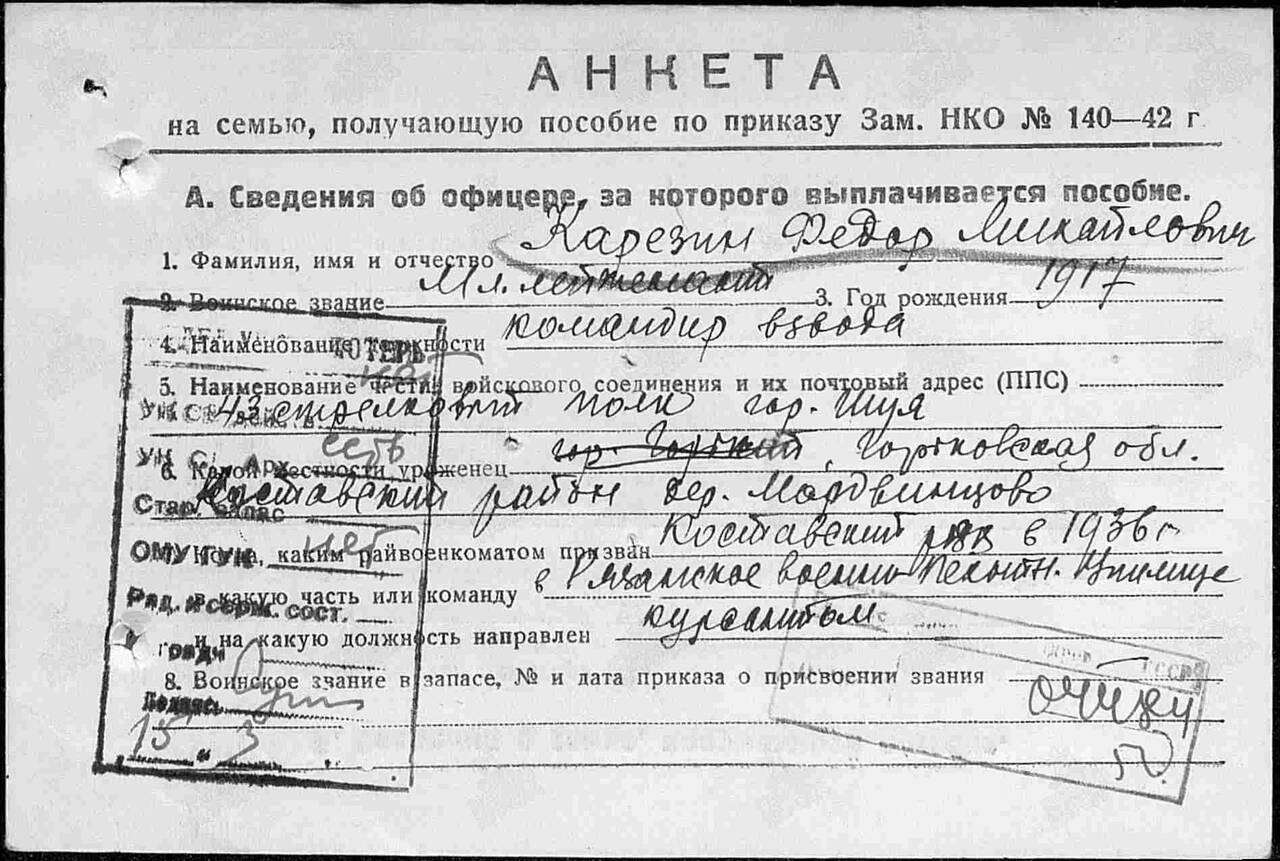 АНКЕТА
на семью, получающую пособие по приказу Зам. НКО № 140—42 г
А. Сведения об офицере, за которого выплачивается пособие.
1. Фамилия, имя и отчество Карезин Федор Михайлович
2. Воинское звание Мл. лейтенант 3. Год рождения 1917
4. Наименование должности командир взвода
5. Наименование части, войскового соединения и их почтовый адрес (ППС)
43 стрелковый полк гор. Шуя
6. Какой местности уроженец гор. Горький, Горьковская обл.
Кстовский район дер. Мордвинцово
каким райвоенкоматом призван в 1936 г
в какую часть или команду в Рязанское военно-Пехотн. Училище
и на какую должность направлен курсантом
8. Воинское звание в запасе, № и дата приказа о присвоении звания
ПОТЕРЬ
нет
УК С
есть
УК С Арх
Стар. запас
ОМУ ГУК нет
Ряд. и серж. сост.
Подпись
15 " 3
СССР